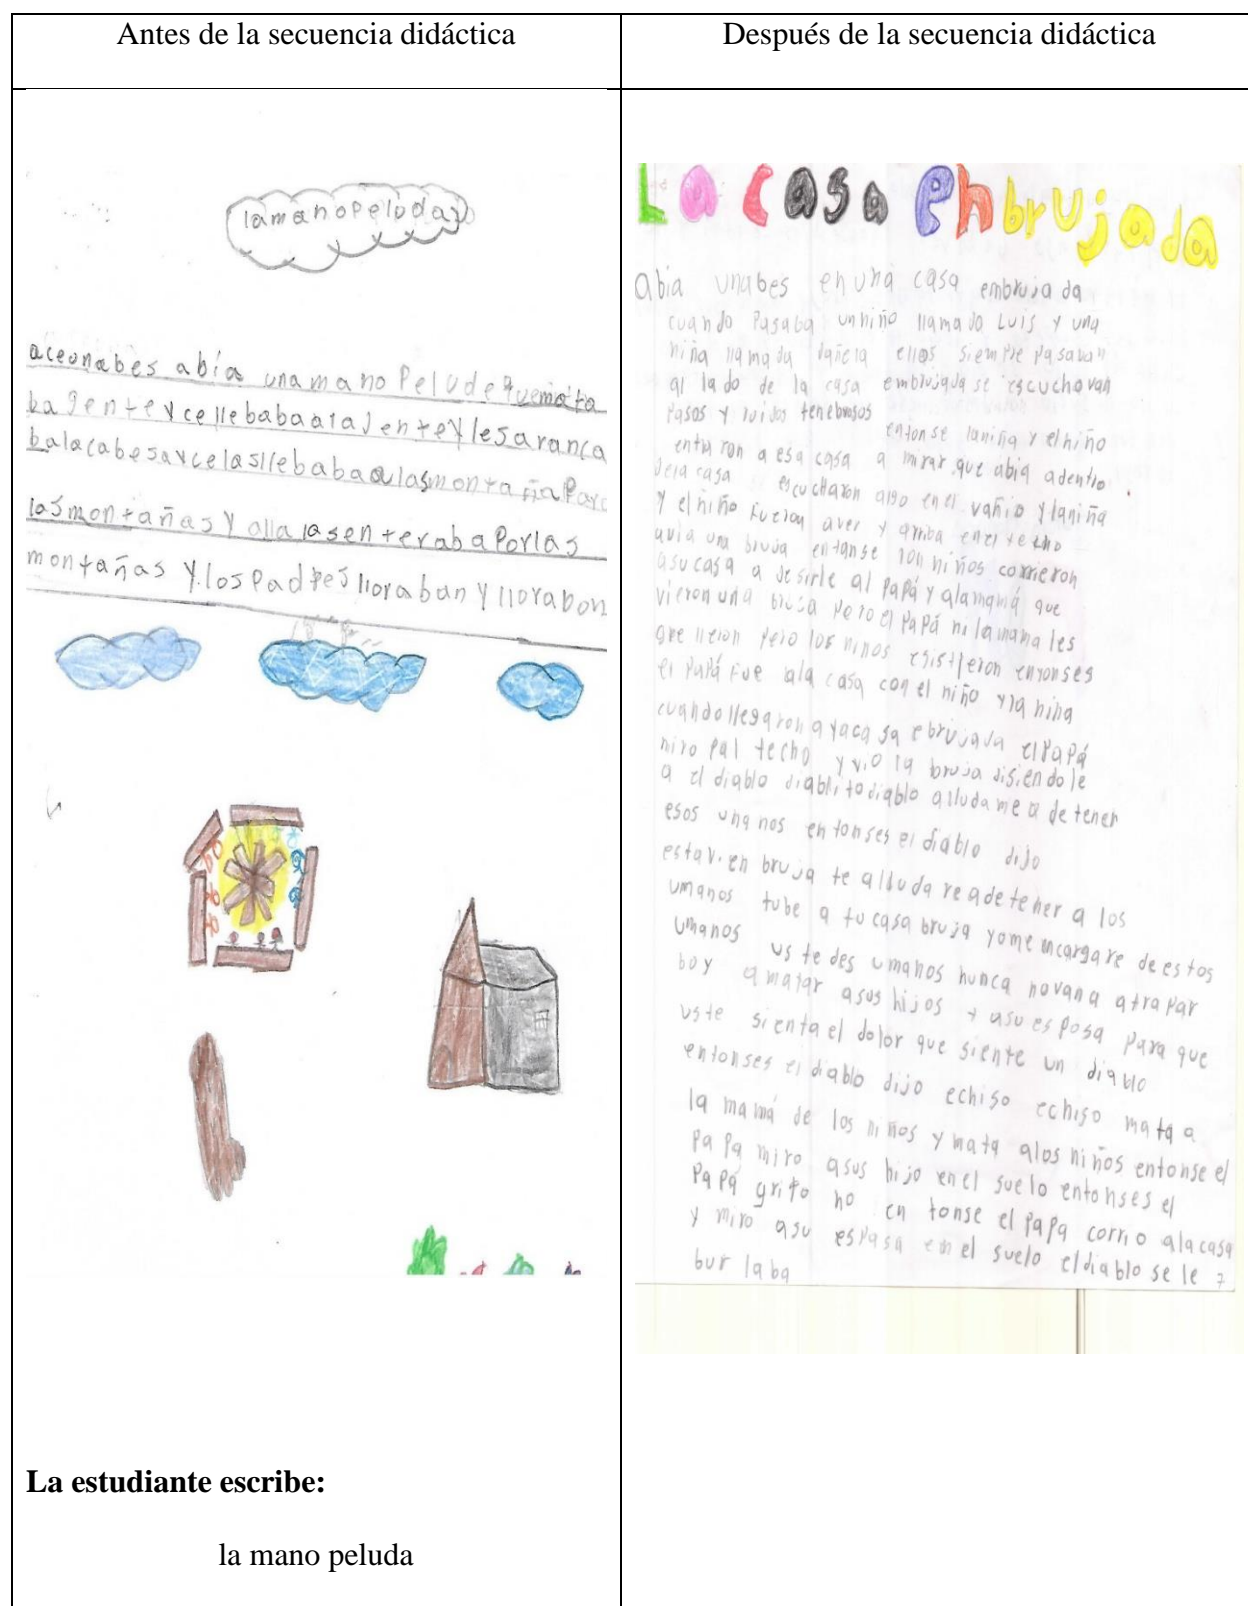 Antes de la secuencia didáctica
Después de la secuencia didáctica
lamanopeluda
aceunabes abía una mano Peluda quemata
ba gente y ce llebaba ala jente y les aranca
ba la cabesa y ce las llebaba a las montaña Par
las montañas y alla las enteraba Por las
montañas y los Padres lloraban y lloraban
La estudiante escribe:
la mano peluda
La casa enbrujada
abia unabes en una casa embrujada
cuando Pasaba unniño llamado Luis y una
niña llamada dañela ellos siempre pasavan
al lado de la casa embrujada se escuchavan
Pasos y ruidos tenebrosos
entonse laniña y elniño
entraron a esa casa a mirar que abia adentro
dela casa escucharon algo en el vañio y laniña
y el niño fueron aver y arriba enel techo
avia una bruja entonse los niños corrieron
asu casa a desirle al Papá y alamamá que
vieron una bruja Pero el Papá ni la mama les
pero los niños entonses
el Papá fue ala casa con el niño y la niña
cuando llegaron a laca sa ebrujada el Papá
miro pal techo y vio la bruja disiendole
a el diablo diablito diablo alludame a de tener
esos umanos entonses el diablo dijo
esta vien bruja te alludare adetener a los
umanos tube a tu casa bruja yome encargare de estos
umanos ustedes umanos nunca novana atrapar
boy amatar asus hijos y asu esposa para que
uste sienta el dolor que siente un diablo
entonses el diablo dijo echiso echiso mata a
la mamá de los niños y mata alos niños entonse el
Papa miro asus hijo enel suelo entonses el
Papá grito no en tonse el Papa corrio alacasa
y miro asu esposa en el suelo eldiablo se le
bur laba